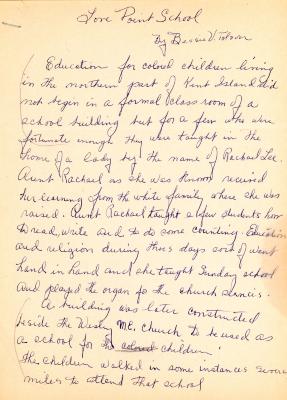 Love Point School
By Bessie
Education for colored children living
in the northern part of Kent Island did
not begin in a formal class room of a
school building but for a few who were
fortunate enough they were taught in the
home of a lady by the name of Rachael Lee.
Aunt Rachael as she was known received
her learning from the white family where she was
raised. Aunt Rachael taught a few students how
to read, write and to do some counting. Education
and religion during those days sort of went
hand in hand and she taught Sunday school
and played the organ for the church services.
A building was later constructed
beside the Wesley M.E. Church to be used as
a school for the colored children.
The children walked in some instances several
miles to attend that school